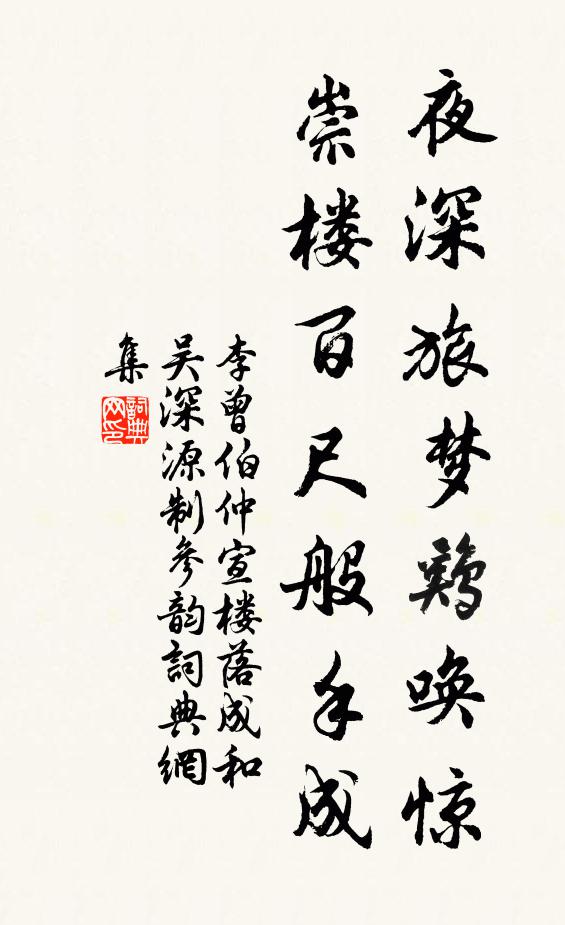 夜深旅梦鷄唤惊
崇楼百尺般手成
李曾伯仲宣楼落成和
吴深源制参韵詞典網
集
詞典网印